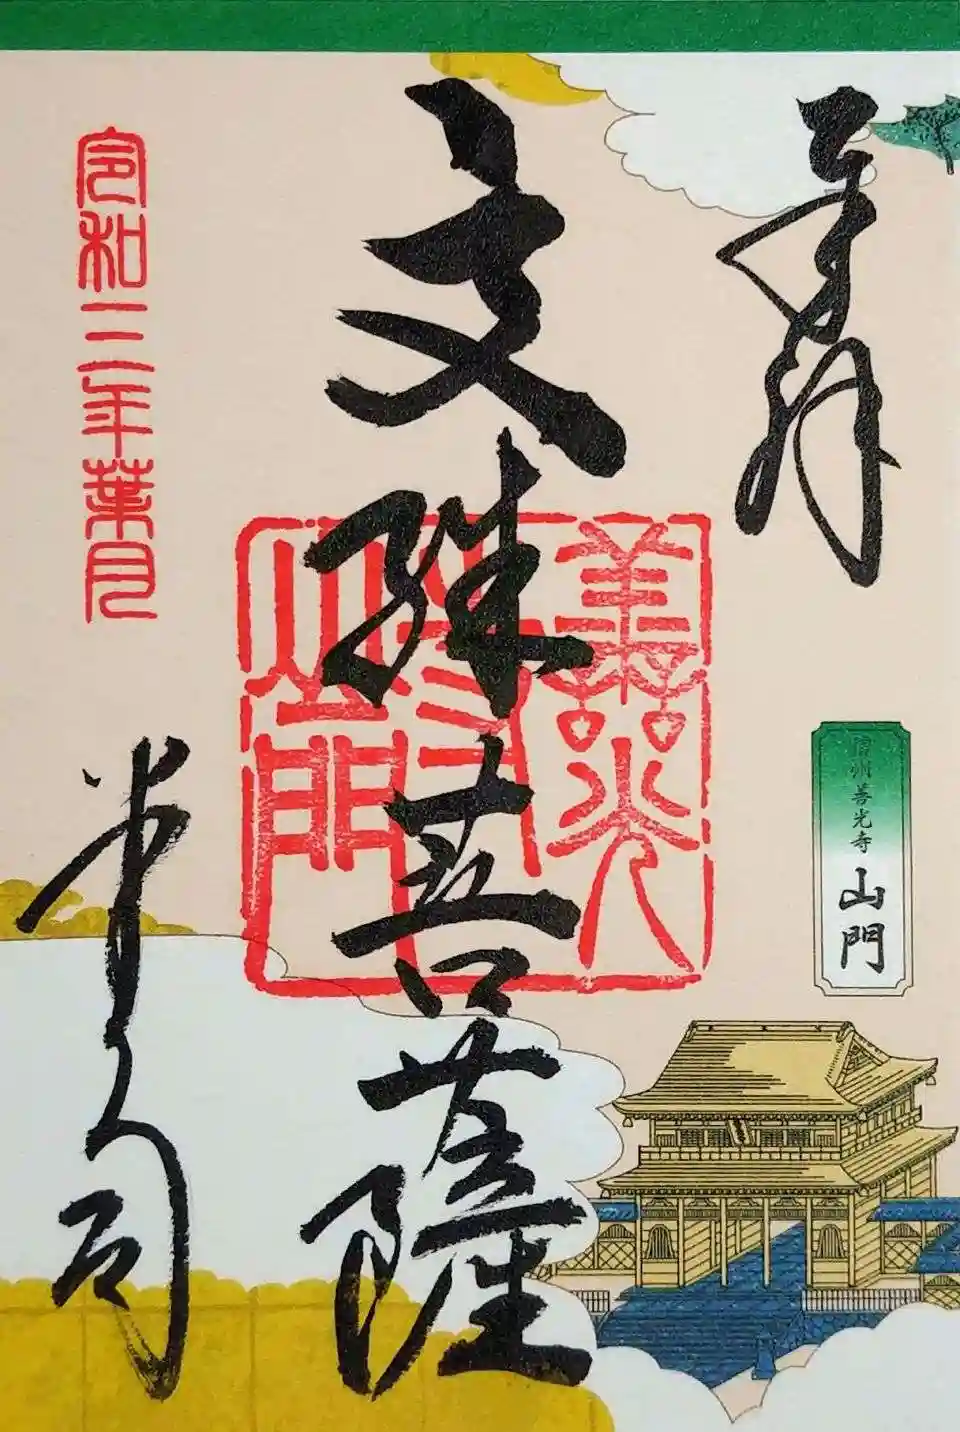 奉拝
信州善光寺
山門
文殊菩薩
善光寺
山門
令和三年葉月
堂司